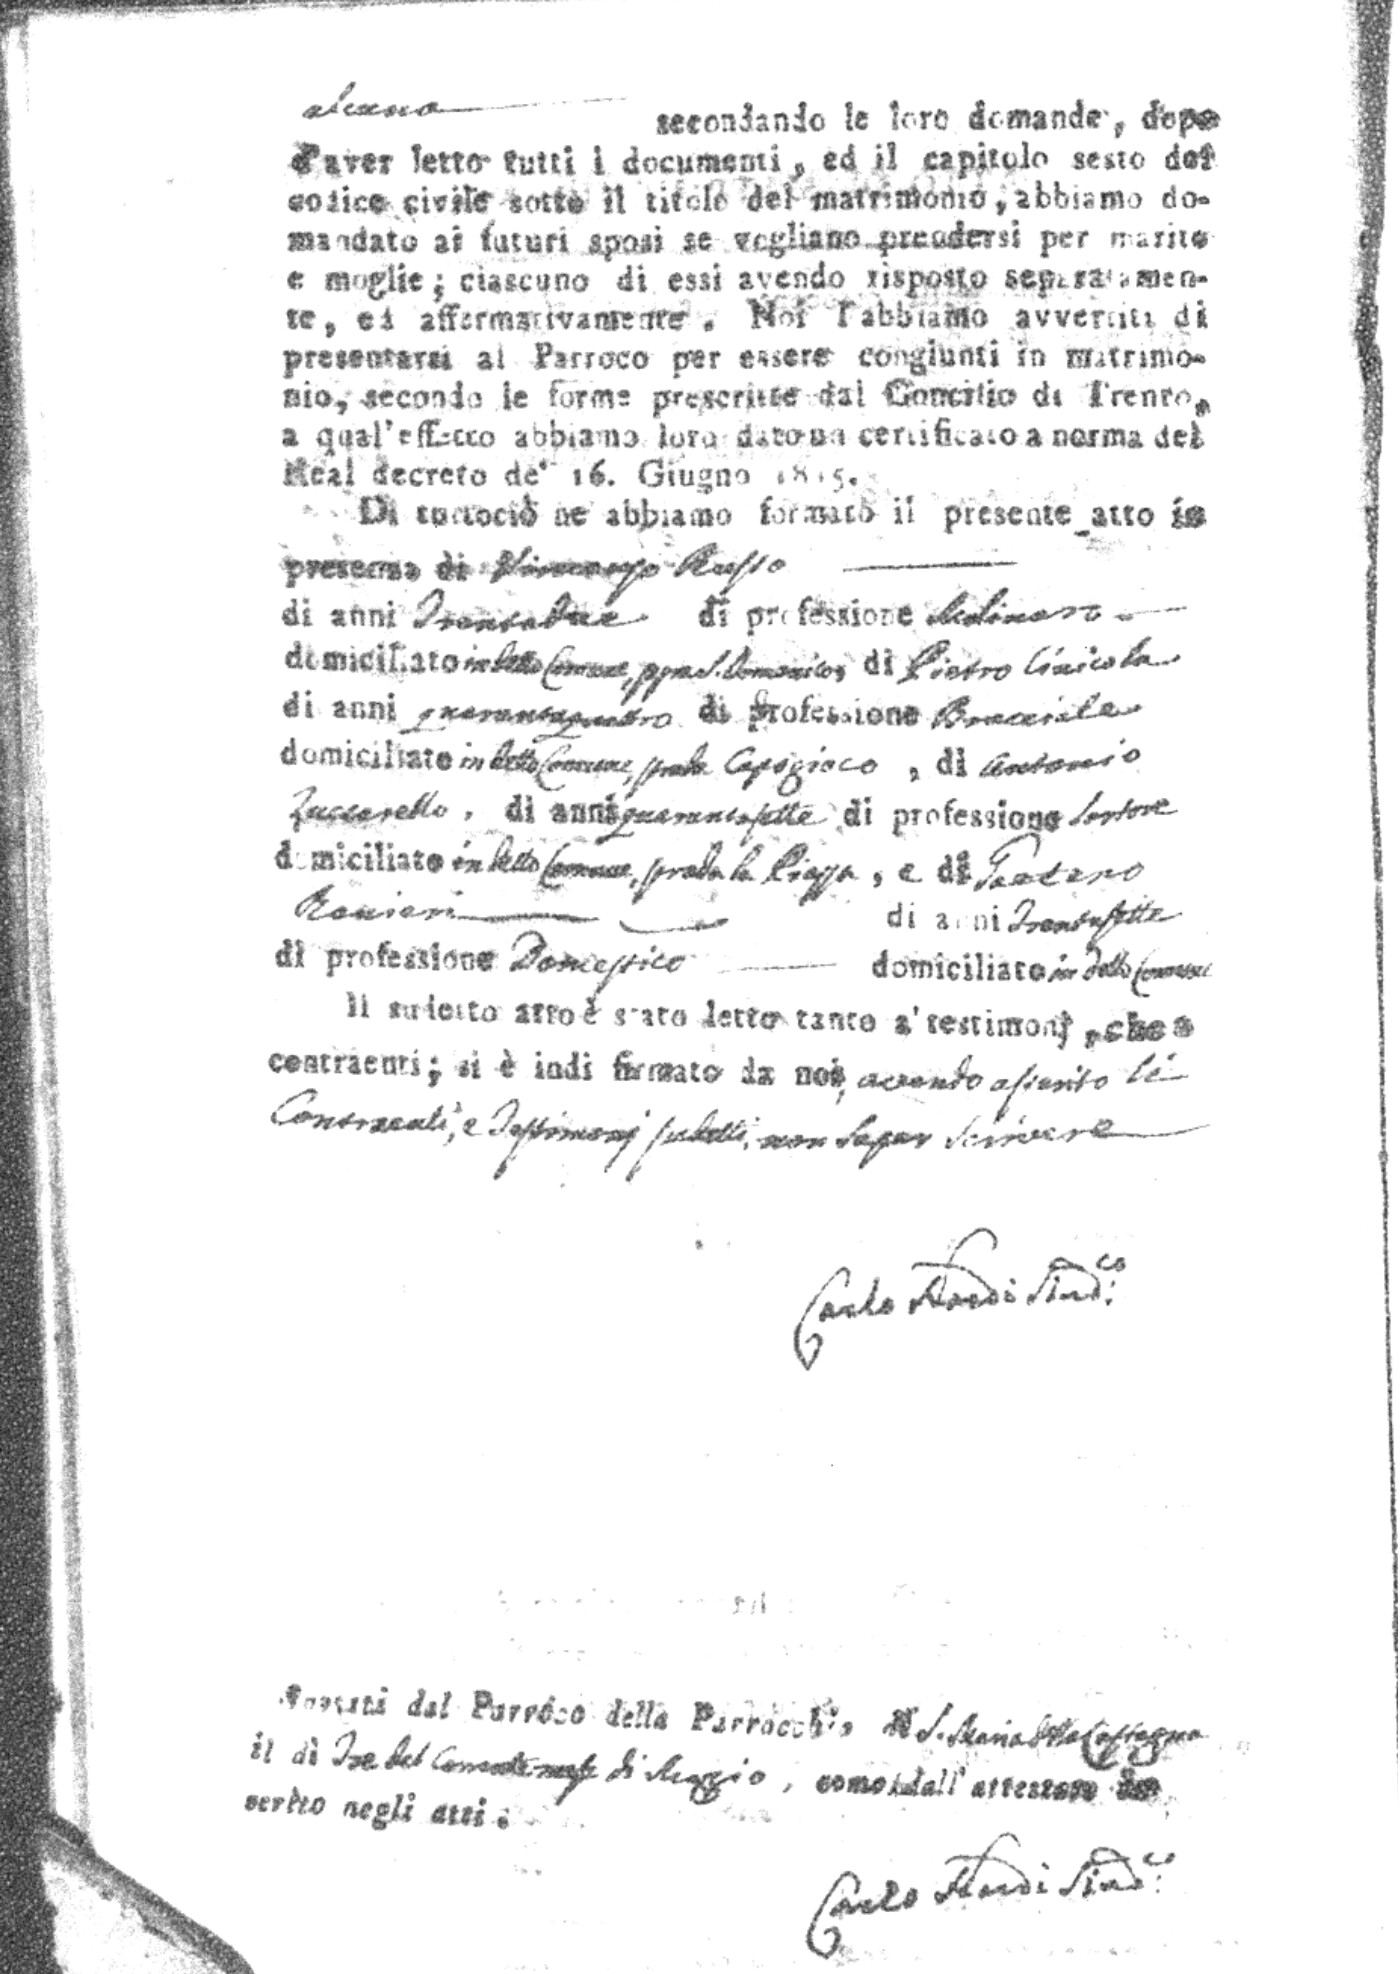 alcuna secondando le loro domande, dopo
d'aver letto tutti i documenti, ed il capitolo sesto del
codice civile sotto il titolo del matrimonio, abbiamo do-
mandato ai futuri sposi se vogliano prendersi per marito
e moglie; ciascuno di essi avendo risposto separatamen-
te, ed affermativamente. Noi l'abbiamo avvertiti di
presentarsi al Parroco per essere congiunti in matrimo-
nio, secondo le forme prescritte dal Concilio di Trento,
a qual'effetto abbiamo loro dato un certificato a norma del
Real decreto de' 16. Giugno 1815.
Di tuttociò ne abbiamo formato il presente atto in
presenza di Vincenzo Russo
di anni Trentadue di professione Molinaro
domiciliato in detto Comune, S. Domenico, di Pietro
di anni quarantaquattro di professione Bracciale
domiciliato in detto Comune, strada Capogioco, di Antonio
Zuccarello, di anni quarantasette di professione Sartore
domiciliato in detto Comune, strada la Piazza, e di Gaetano
Ranieri di anni Trentasette
di professione Domestico domiciliato in detto Comune
Il sudetto atto è stato letto tanto a' testimonj, che a
contraenti; si è indi firmato da noi, avendo asserito li
Contraenti, e Testimonj sudetti, non saper scrivere
Carlo Sind.co
dal Parroco della Parrocchia di S. Maria della Castagna
il dì Tre del Corrente mese di Maggio, come dall'attestato in-
serito negli atti.
Carlo Sind.co